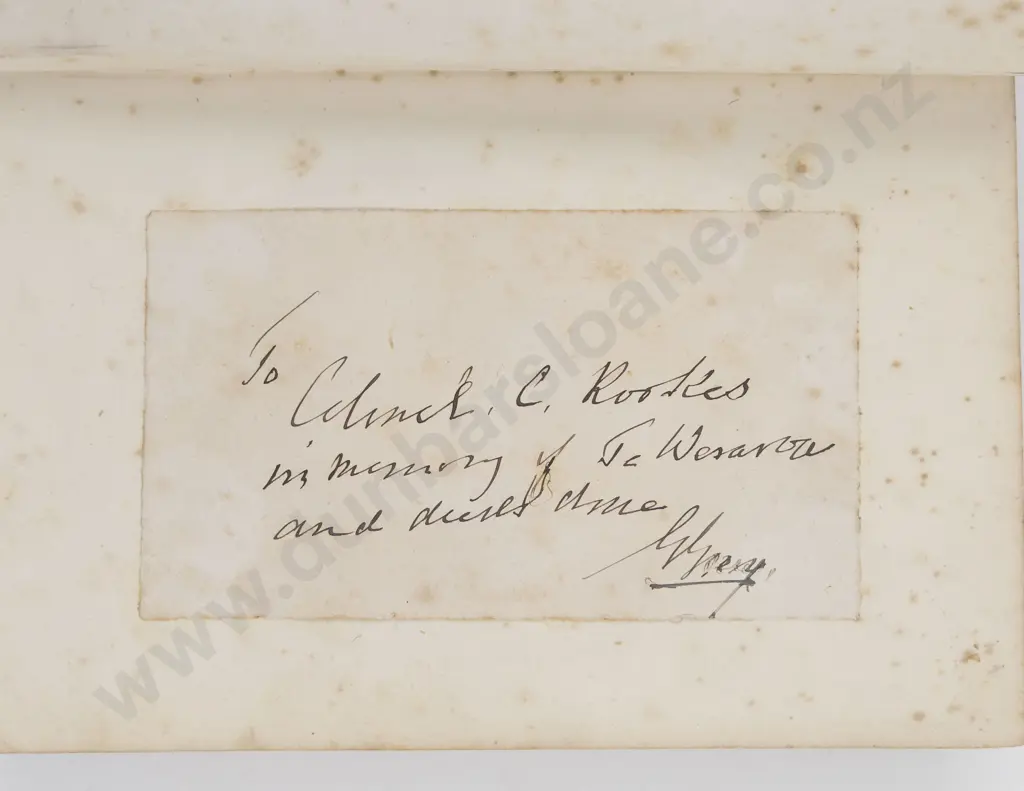 To
Colonel. C. Rookes
in memory of Te Weraroa
and deeds done
G Grey.
www.dunbarsloane.co.nz